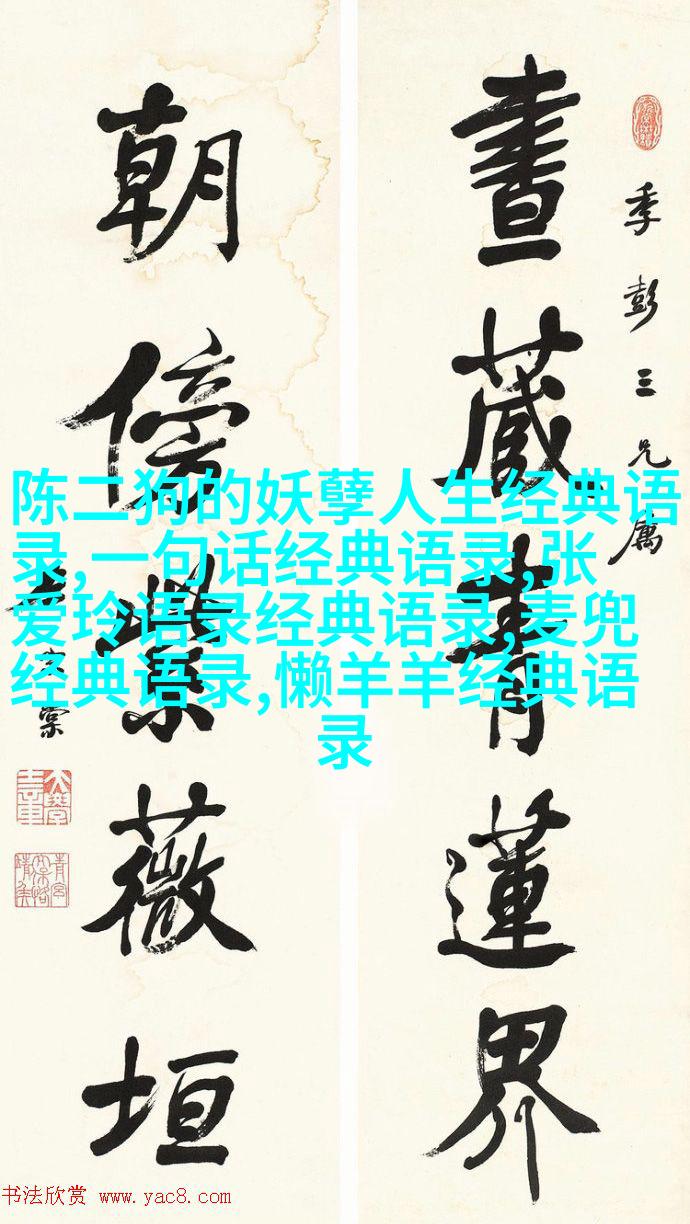 書藏青蓮界
季彭三兄属
朝傍紫薇垣
陈二狗的妖孽人生经典语
录,一句话经典语录,张
爱玲语录经典语录,麦兜
经典语录,懒羊羊经典语
录
书法欣赏 www.yac8.com